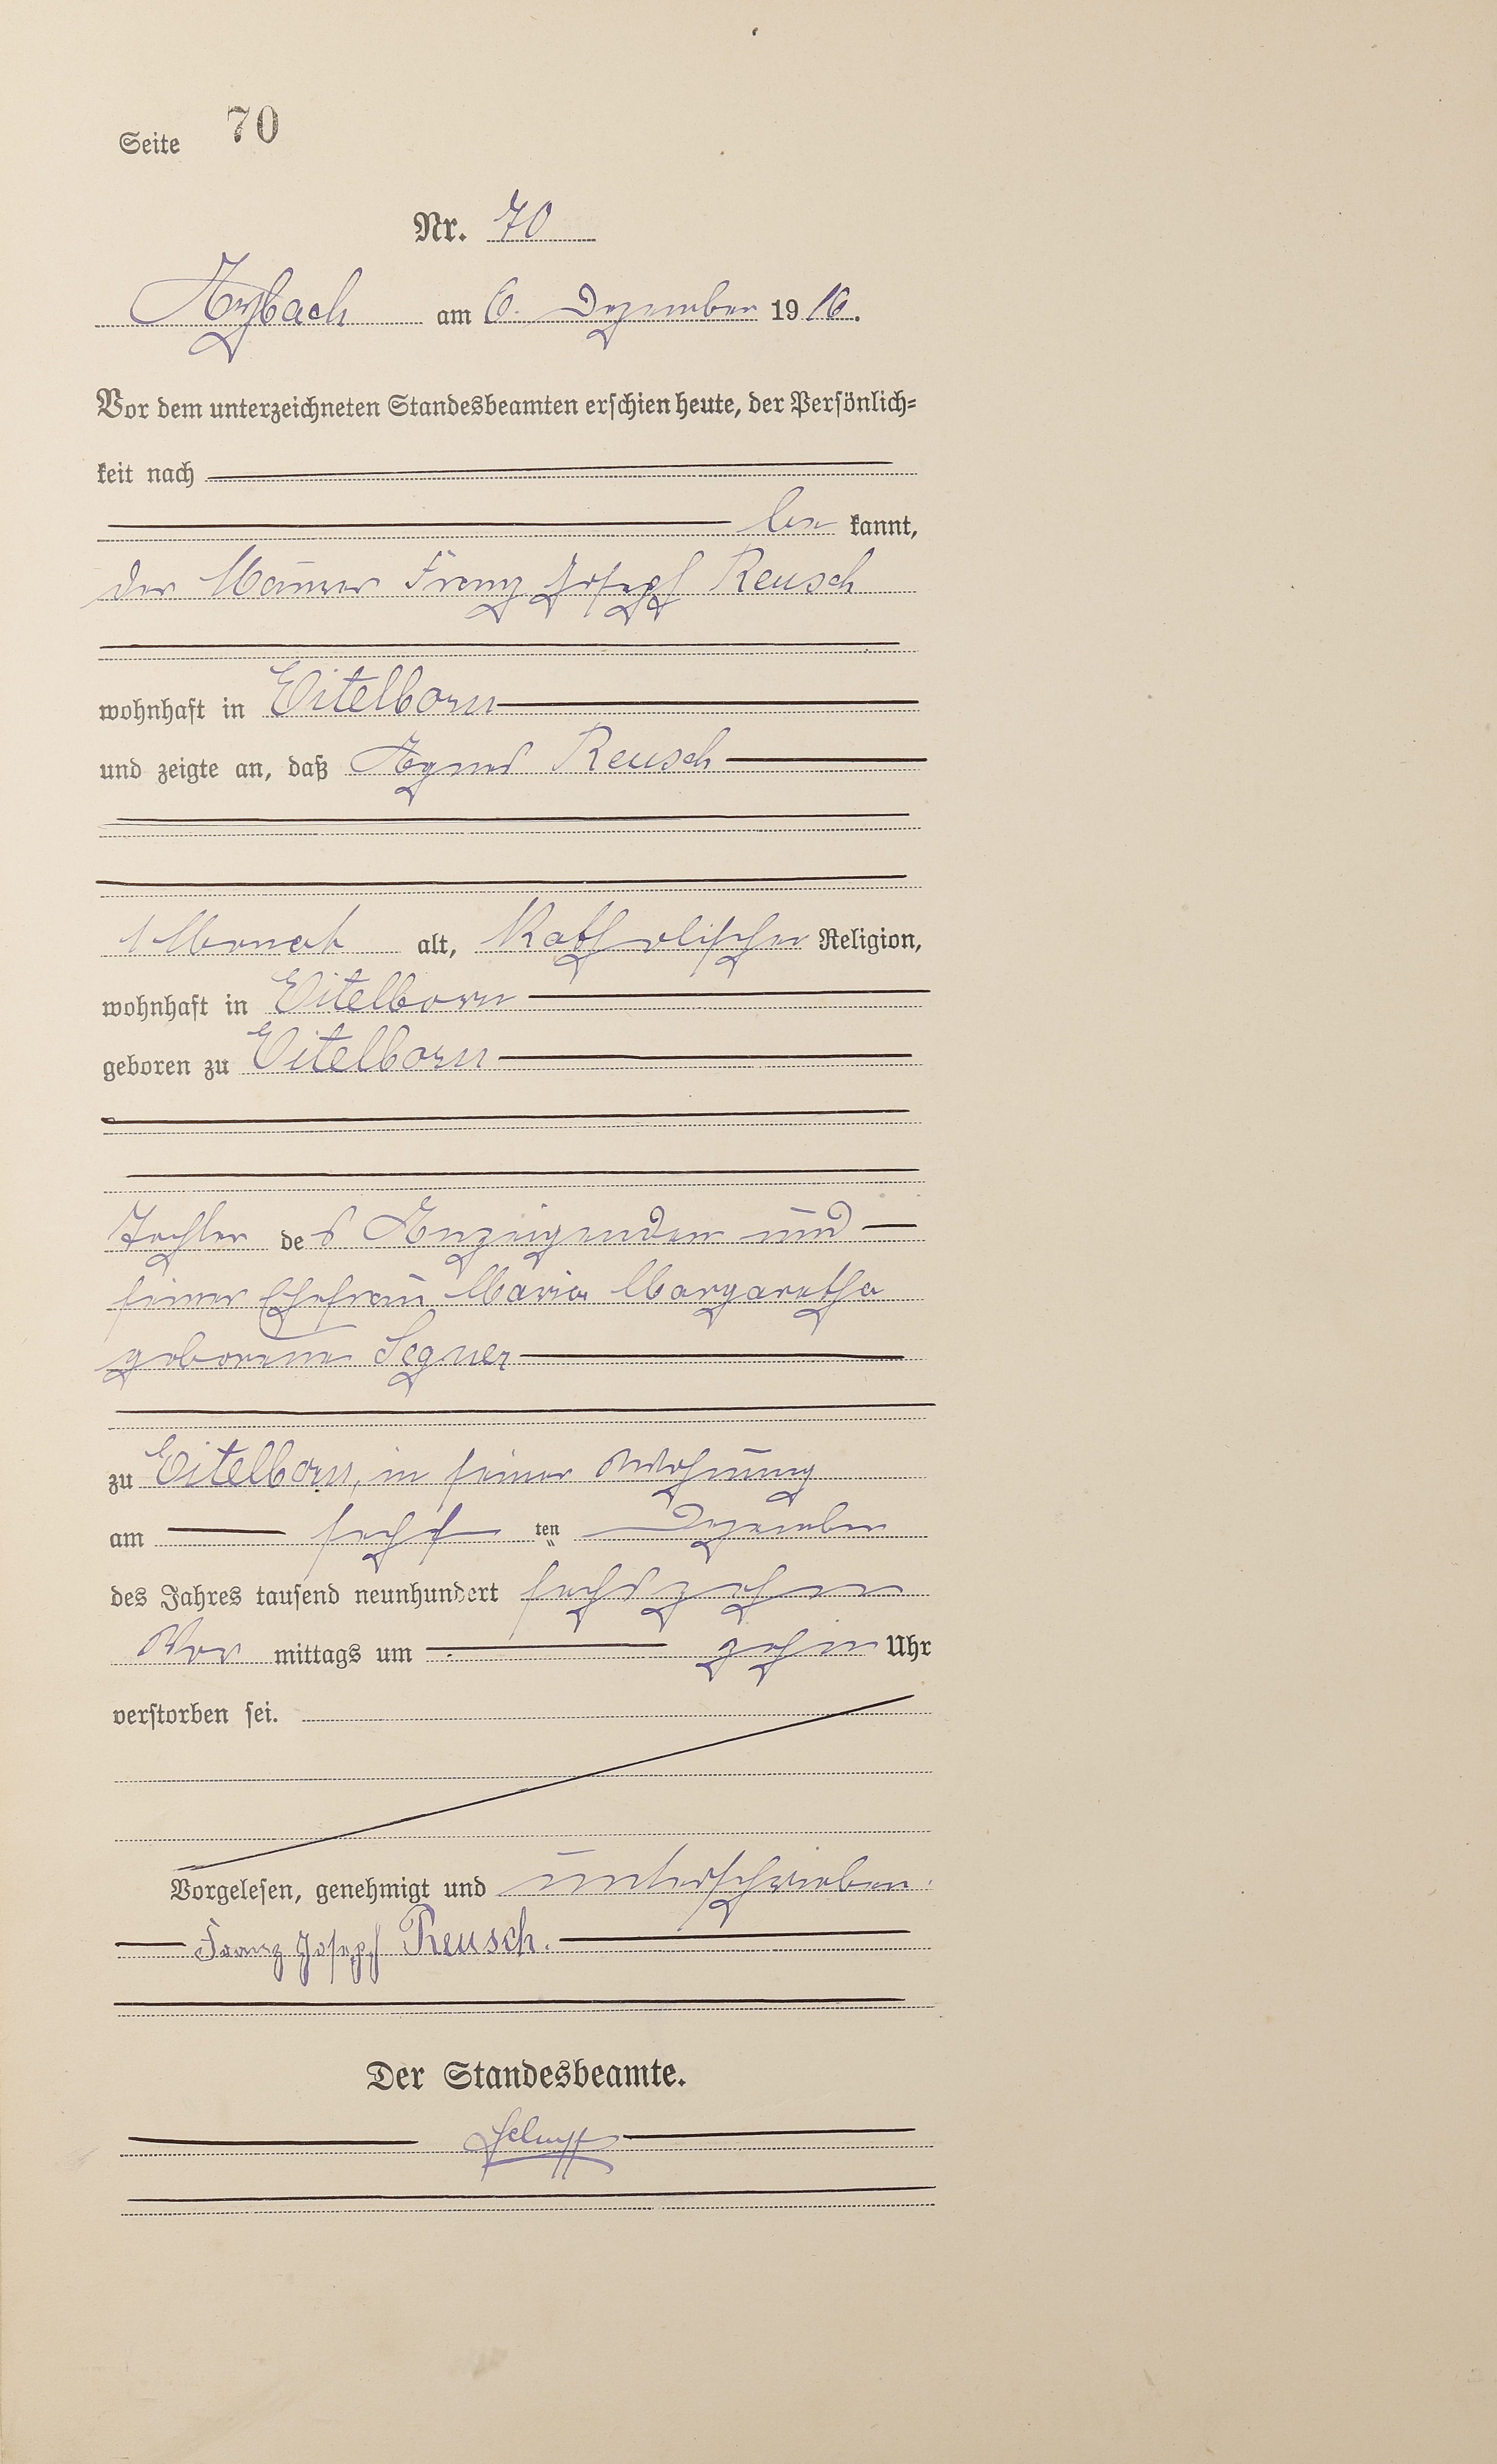 Seite 70
Nr. 70
Arzbach am 6. Dezember 1916.
Vor dem unterzeichneten Standesbeamten erschien heute, der Persönlich=
keit nach
be kannt,
der Maurer Franz Joseph Reusch
wohnhaft in Eitelborn
und zeigte an, daß Agnes Reusch
1 Monat alt, Katholischer Religion,
wohnhaft in Eitelborn
geboren zu Eitelborn
Tochter des Anzeigenden und
seiner Ehefrau Maria Margaretha
geborene Segner
zu Eitelborn, in seiner Wohnung
am sechsten Dezember
des Jahres tausend neunhundert sechszehn
Vor mittags um zehn Uhr
verstorben sei.
Vorgelesen, genehmigt und unterschrieben.
Franz Joseph Reusch.
Der Standesbeamte.